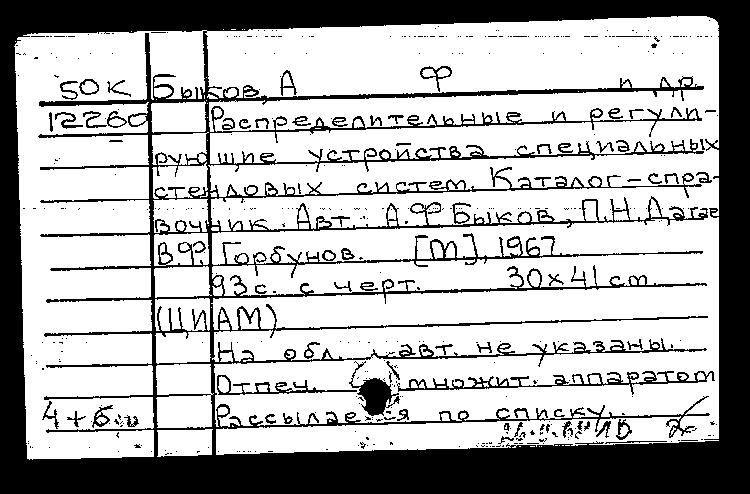 50К Быков, А Ф и др.
12260 Распределительные и регули-
рующие устройства специальных
стендовых систем. Каталог-спра-
вочник. Авт.: А.Ф Быков, П.Н.Дагае
В.Ф. Горбунов. [М], 1967.
93с. с черт. 30х41 cm
(ЦИАМ)
На обл. авт. не указаны.
Отпеч. множит. аппаратом
4+б.ш Рассылается по списку.